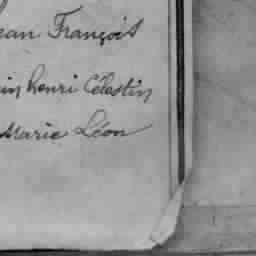 ean François
in henri Célestin
Marie Léon